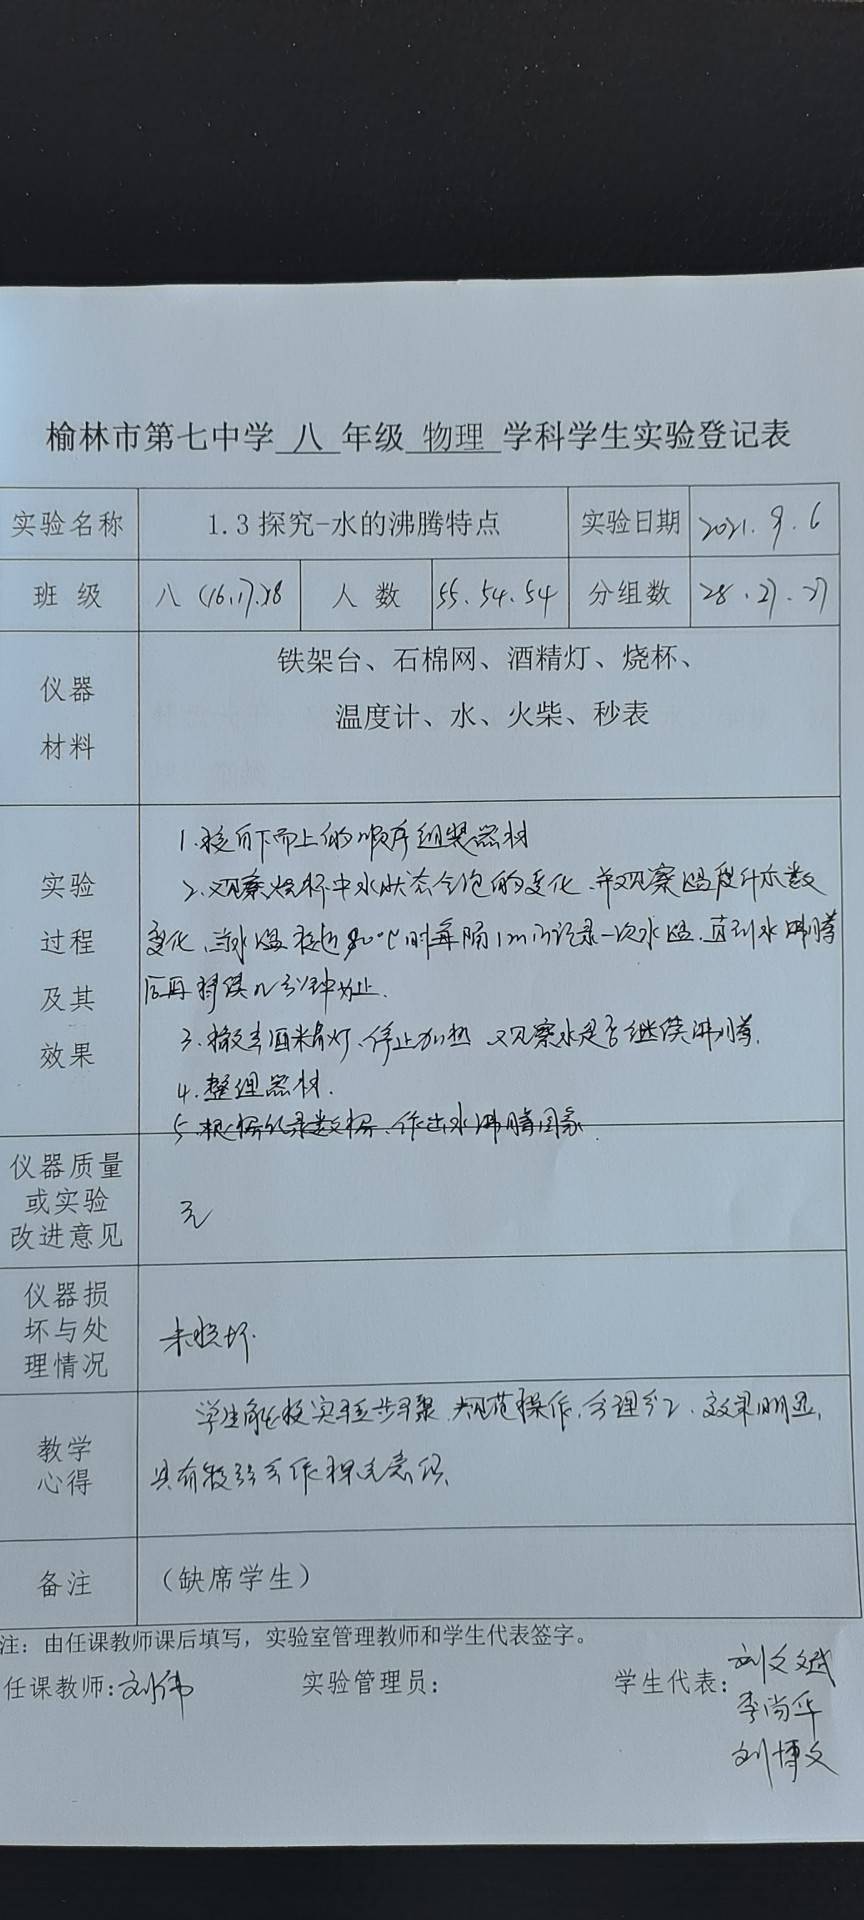 榆林市第七中学 八 年级 物理 学科学生实验登记表
实验名称 1.3 探究-水的沸腾特点 实验日期 2021.9.6
班 级 八（16.17.18 人 数 55.54.54 分组数 28.27.27
仪器
材料
铁架台、石棉网、酒精灯、烧杯、
温度计、水、火柴、秒表
实验
过程
及其
效果
1.按自下而上的顺序组装器材
2.观察烧杯中水状态气泡的变化.并观察温度计示数
变化.当水温接近90℃时每隔1min记录一次水温.直到水沸腾
后再持续几分钟为止.
3.撤去酒精灯、停止加热 观察水是否继续沸腾.
4.整理器材.
5.根据记录数据.作出水沸腾图象.
仪器质量
或实验
改进意见
无
仪器损
坏与处
理情况
未损坏.
教学
心得
学生能按实验步骤.规范操作.合理分工.效果明显.
具有较强合作探究意识
备注 （缺席学生）
注：由任课教师课后填写，实验室管理教师和学生代表签字。
任课教师：刘伟 实验管理员： 学生代表：刘文斌
李尚华
刘博文